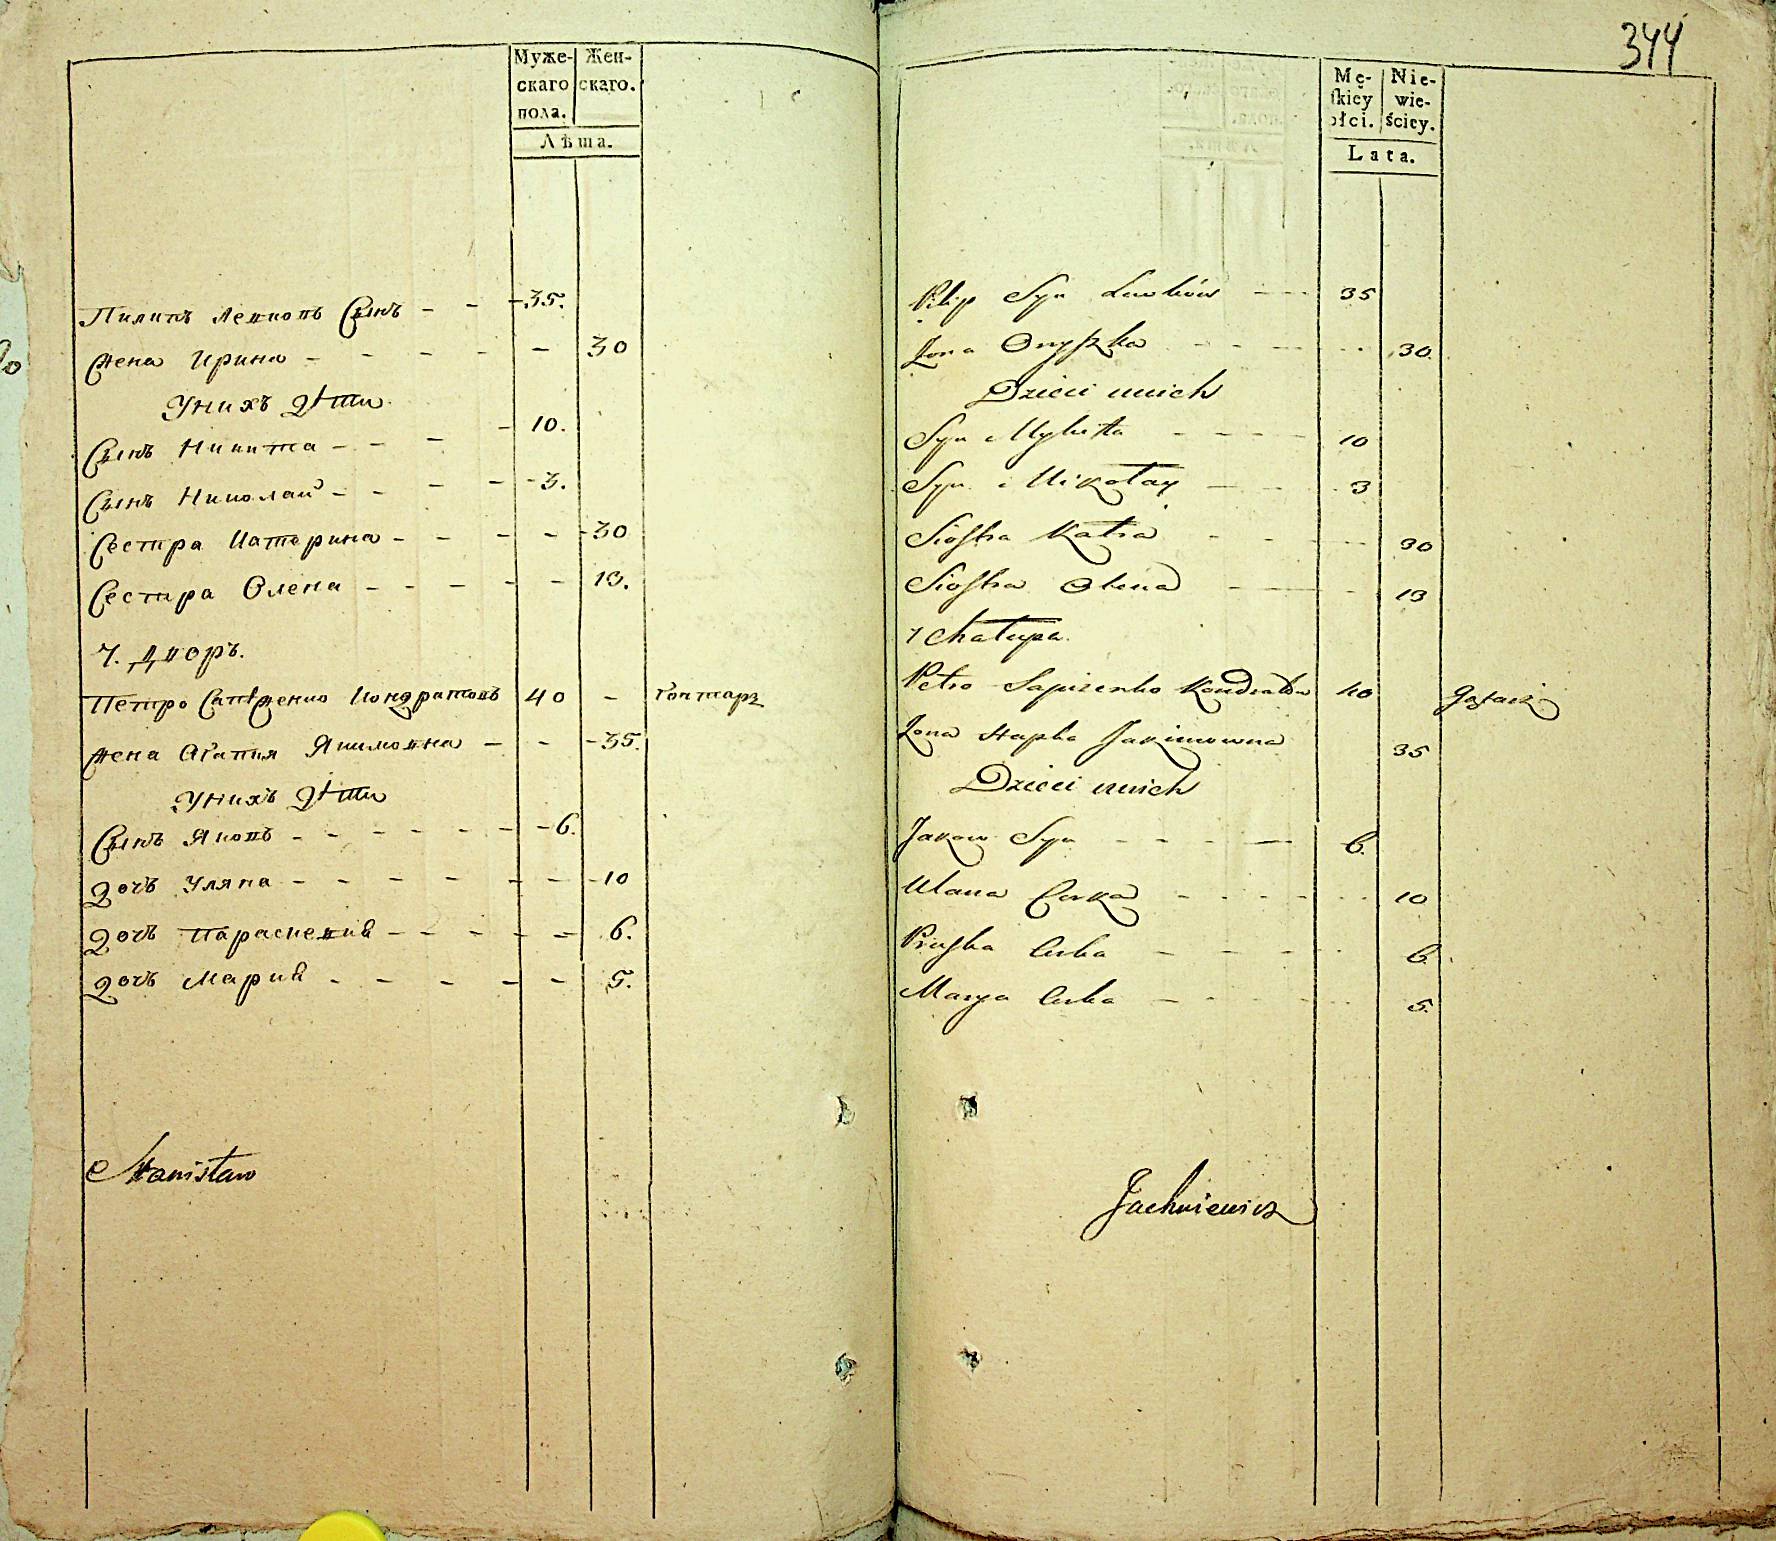 344
Муже- Жен-
скаго скаго.
пола.
Лѣта.
Пилипъ Левковъ Сынъ - - - 35.
Жена Ирина - - - - - 30
Унихъ дѣти
Сынъ Никита - - - - 10.
Сынъ Николай - - - - - 3.
Сестра Катерина - - - - - 30
Сестра Олена - - - - - 13.
7. Дворъ.
Петро Сапѣженко Кондратовъ 40 - Гонтарь
Жена Агапия Якимовна - - - 35.
Унихъ дѣти
Сынъ Яковъ - - - - - - - 6.
Дочь Уляна - - - - - - - 10
Дочь Параскевия - - - - - 6.
Дочь Мария - - - - - 5.
Stanisław
Mę- Nie-
skiey wie-
płci. ściey.
Lata.
Pilip Syn Lewków - - - 35
Żona Oryszka - - - - - - 30.
Dzieci unich
Syn Mykitta - - - - 10
Syn Mikołay - - - 3
Siostra Katra - - - - - 30
Siostra Olena - - - 13
7 Chałupa.
Petro Sapizenko Kondratów 40
Żona Hapka Jakimowna 35
Dzieci unich
Jakow Syn - - - - - 6.
Ulana Corka - - - - - - 10
Pruska Curka - - - - 6.
Marya Curka - - - - - - 5.
Jachniewicz